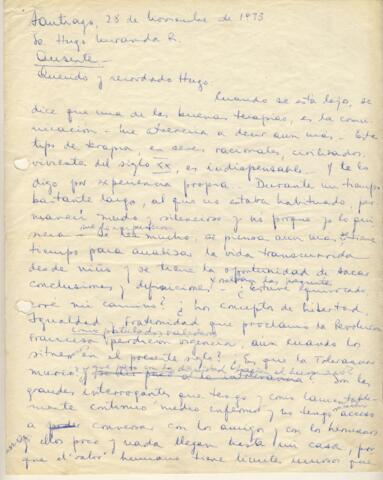 Santiago, 28 de Noviembre de 1973
Sr. Hugo Miranda R.
Presente.-
Querido y recordado Hugo
Cuando se esta lejo, se
dice que una de las buenas terapias, es la comu-
nicación - me atreveria a decir aun mas - Este
tipo de terapia en seres racionales, civilizados,
vivientes del siglo XX, es indispensable - Y te lo
digo por experiencia propia. Durante un tiempo
bastante largo, al que no estaba habituado, per-
maneci mudo y silencioso y no porque yo lo qui
siera - mucho, se piensa aun mas, se tiene
tiempo para analizar la vida transcurrida
desde niño y se tiene la oportunidad de sacar
conclusiones y
mi camino? ¿Los conceptos de libertad.
Igualdad, fraternidad que proclamó la Revolución
como postulados valederos
Francesa perdieron vigencia, aun cuando los
situemos en el presente siglo? ¿Es que la Tolerancia
murio? ¿
grandes interrogantes que tengo y como lamentable-
mente continuo medio enfermo y no tengo acceso
a conversar con los amigos y con los hermanos
ellos poco y nada llegan hasta mi casa, por
que el valor humano tiene limite